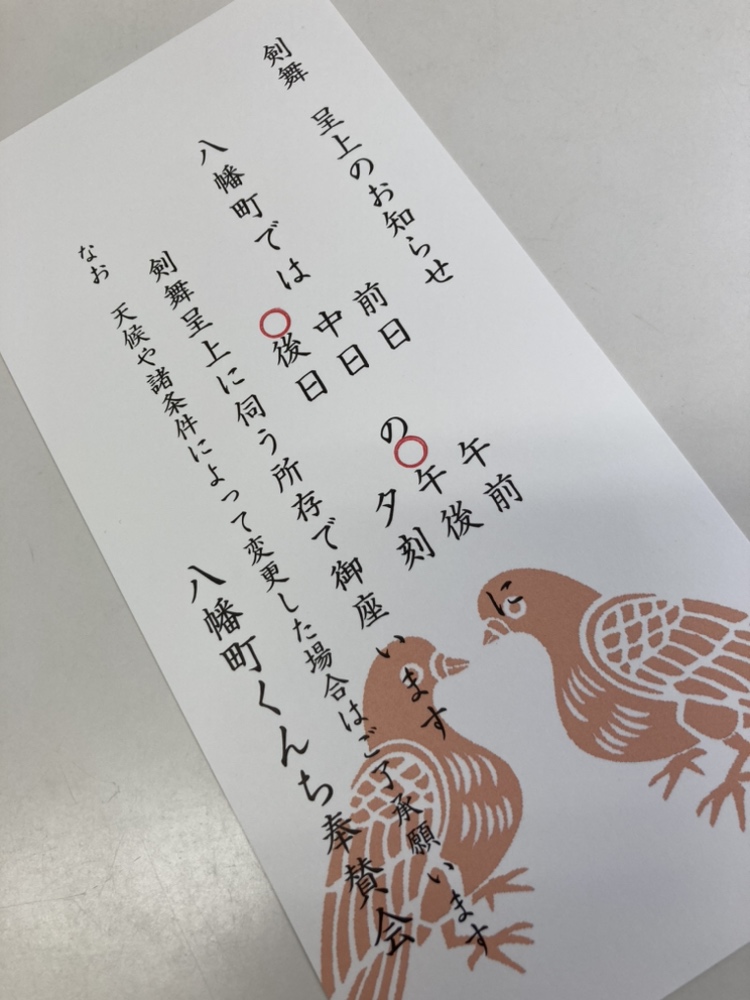 剣舞　呈上のお知らせ
八幡町では
前日
中日
○後日
の
午前
○午後
夕刻
に
剣舞呈上に伺う所存で御座います
なお　天候や諸条件によって変更した場合はご了承願います
八幡町くんち奉賛会